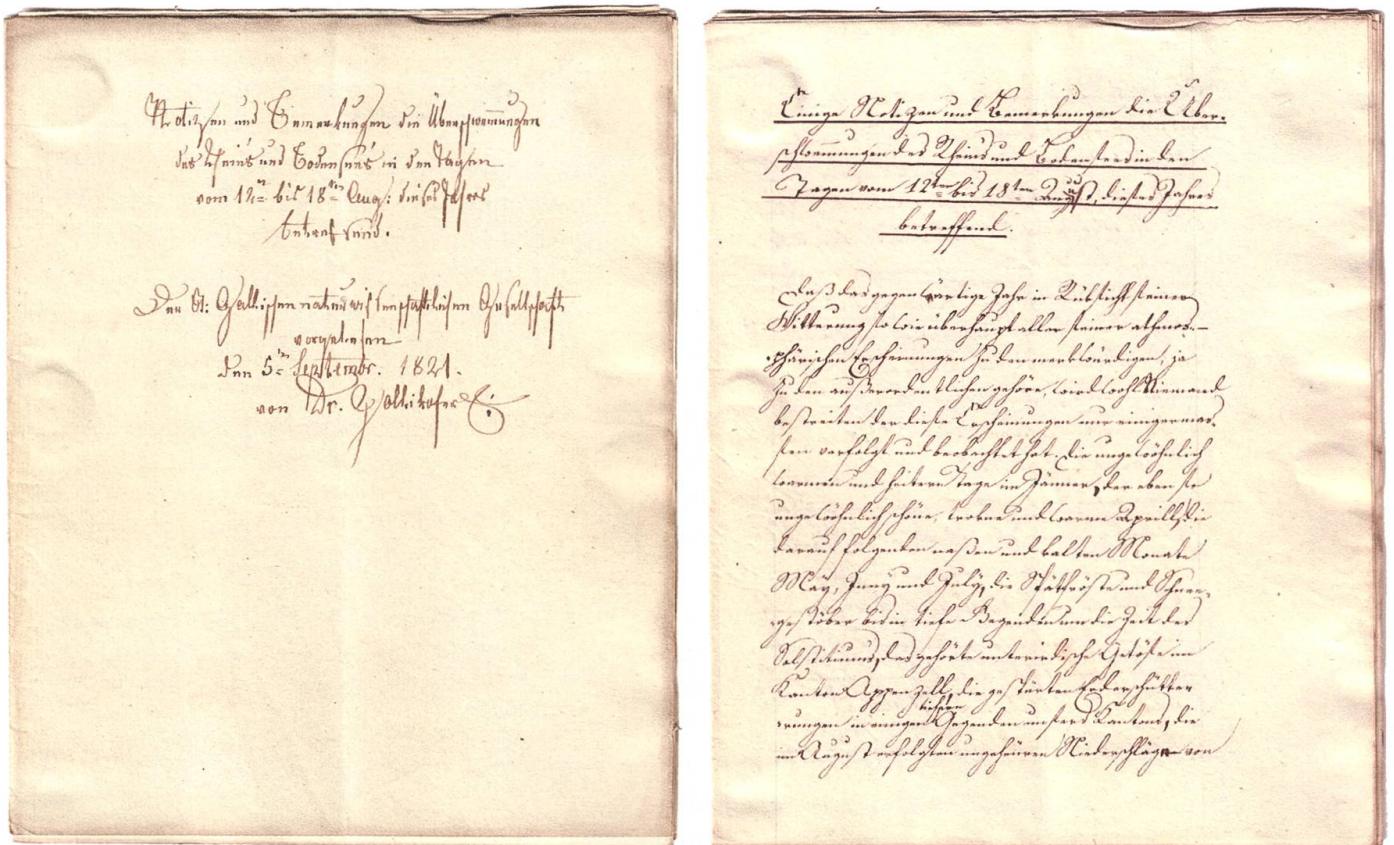 Notizen und Bemerkungen die Überschwemmungen
des Rheins und Bodensees in den Tagen
vom 12ten bis 18ten Aug: dieses Jahres
betreffend.
Der St: Gallischen naturwissenschaftlichen Gesellschaft
vorgelesen
den 5ten Septembr. 1821.
von Dr. Zollikofer
Einige Notizen und Bemerkungen die Über-
schwemmungen des Rheins und Bodensees in den
Tagen vom 12ten bis 18ten August, dieses Jahres
betreffend.
Daß das gegenwärtige Jahr in Rüksicht seiner
Witterung so wie überhaupt aller seiner athmos-
phärischen Erscheinungen zu den merkwürdigen, ja
zu den außerordentlichen gehöre, wird wohl Niemand
bestreiten der diese Erscheinungen nur einigermas-
sen verfolgt und beobachtet hat. Die ungewöhnlich
warmen und heitern Tage im Jänner, der eben so
ungewöhnlich schöne, trokne und warme Aprill, die
darauf folgenden naßen und kalten Monate
May, Juny und July, die Spätfröste und Schnee-
gestöber bis in tiefe Gegenden um die Zeit des
Solstitiums, das gehörte unterirdische Getöse im
Kanton Appenzell, die gespürten Erderschütter
rungen in einigen Gegenden unsers Kantons, die
im August erfolgten ungeheuren Niederschläge von